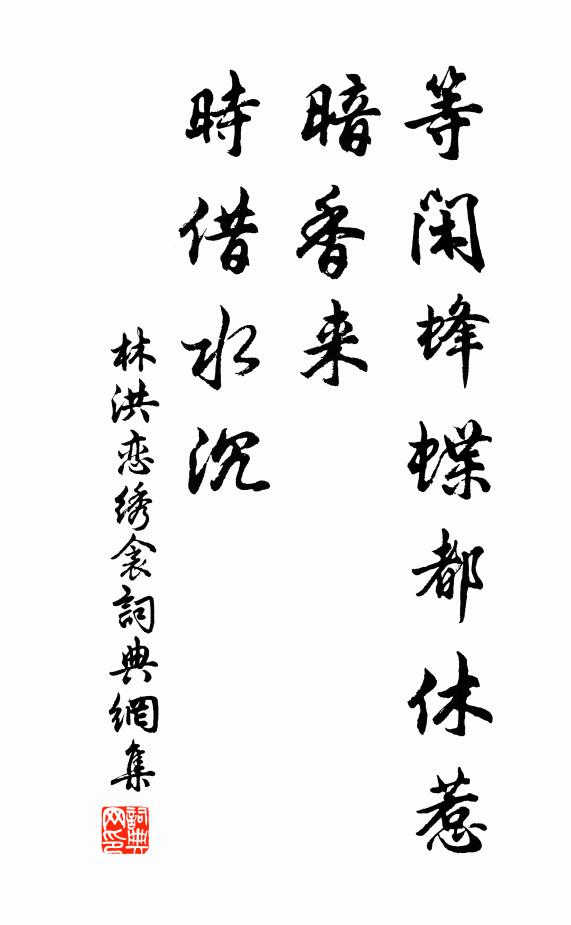 等闲蜂蝶都休惹
暗香来
時借水沉
林洪恋绣衾詞典網集
詞典网印